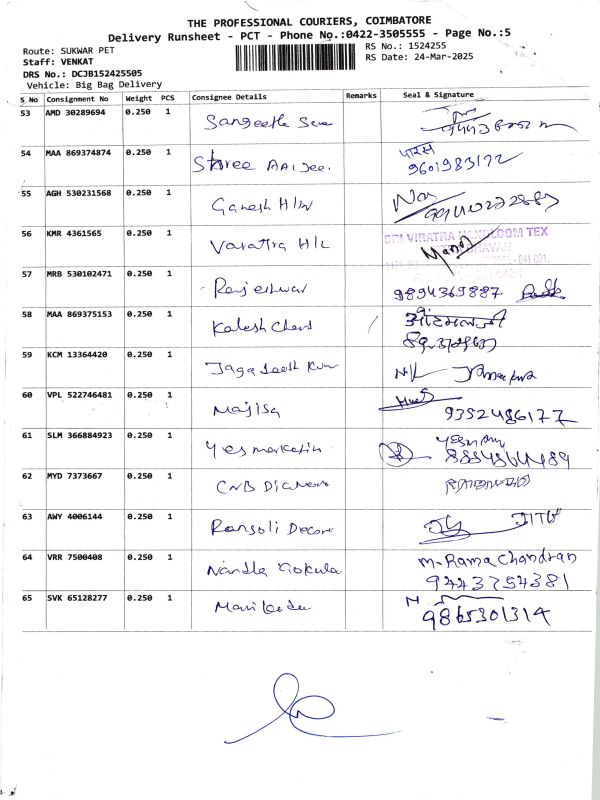 THE PROFESSIONAL COURIERS, COIMBATORE
Delivery Runsheet - PCT - Phone No.:0422-3505555 - Page No.:5
Route: SUKWAR PET
RS No.: 1524255
Staff: VENKAT
RS Date: 24-Mar-2025
DRS No.: DCJB152425505
Vehicle: Big Bag Delivery
S No Consignment No Weight PCS Consignee Details Remarks Seal & Signature
53 AMD 30289694 0.250 1 Sangeetha
54 MAA 869374874 0.250 1 Shree AAi Jee. पारस
9601983172
55 AGH 530231568 0.250 1 Ganesh H/W
56 KMR 4361565 0.250 1 Varattra H/L SRI VIRATRA HANDLOOM TEX
Manoj
57 MRB 530102471 0.250 1 Rajeshwar 9894369887
58 MAA 869375153 0.250 1 Kalesh Chand
59 KCM 13364420 0.250 1 Jagadeesh Kum N/L
60 VPL 522746481 0.250 1 Majisa
9352486177
61 SLM 366884923 0.250 1 Yes marketin
62 MYD 7373667 0.250 1 CNB
63 AWY 4006144 0.250 1 Rangoli Decore JITU
64 VRR 7500408 0.250 1 Nandha Gokula M. Rama Chandran
9443754381
65 SVK 65128277 0.250 1 Manikandan
9865301314